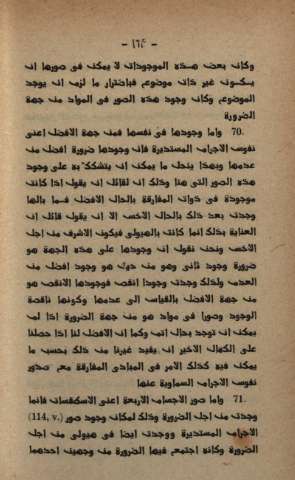 — ١٦٤ —
وكانت بعض هذه الموجودات لا يمكن في صورها ان
يكون غير ذات موضوع فباضطرار ما لزم ان يوجد
الموضوع وكان وجود هذه الصور في المواد من جهة
الضرورة
70. واما وجودها في نفسها فمن جهة الافضل اعني
نفوس الاجرام المستديرة فان وجودها ضرورة افضل من
عدمها وبهذا ينحل ما يمكن ان يتشكك به على وجود
هذه الصور التي هنا وذلك ان لقائل ان يقول اذا كانت
موجودة في ذوات المفارقة بالحال الافضل فما بالها
وجدت بعد ذلك بالحال الاخس الا ان يقول قائل ان
العناية بذلك انما كانت بالهيولى فيكون الاشرف من اجل
الاخس ونحن نقول ان وجودها على هذه الجهة هو
ضرورة وجود ثاني وهو من دون هو وجود افضل من
العدم ولذلك وجدت وجودا انقص فوجودها الانقص هو
من جهة الافضل بالقياس الى عدمها وكونها ناقصة
الوجود وصورا في مواد هو من جهة الضرورة اذا لم
يمكن ان توجد بحال اتم وكما ان الافضل لنا اذا حصلنا
على الكمال الاخير ان نفيد غيرنا من ذلك بحسب ما
يمكن فيه كذلك الامر في المبادئ المفارقة مع صدور
نفوس الاجرام السماوية عنها
71. واما صور الاجسام الاربعة اعني الاسطقسات فانما
وجدت من اجل الضرورة وذلك لمكان وجود صور (114, v.)
الاجرام المستديرة ووجدت ايضا في هيولى من اجل
الضرورة وكانه اجتمع فيها الضرورة من وجهين احدهما